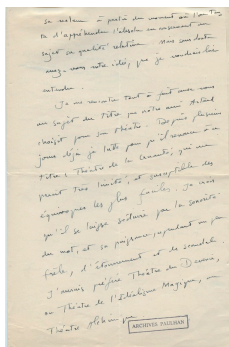 sa notion à partir du moment où l'on
d'appréhender l'absolu en conservant au
sujet sa qualité relative. Mais sans doute
avez-vous votre idée, que je voudrais bien
entendre.
Je me rencontre tout à fait avec vous
au sujet du titre que notre ami Artaud
choisit pour son théâtre. Depuis plusieurs
jours déjà je lutte pour qu'il renonce à ce
titre : Théâtre de la Cruauté, qui me
paraît très limité, et susceptible des
équivoques les plus faciles. Je crois
qu'il se laisse séduire par la sonorité
du mot, et sa puissance, cependant un peu
frêle, d'étonnement et de scandale.
J'aurais préféré Théâtre du Devenir,
ou Théâtre de l'Idéalisme Magique, ou
Théâtre
ARCHIVES PAULHAN